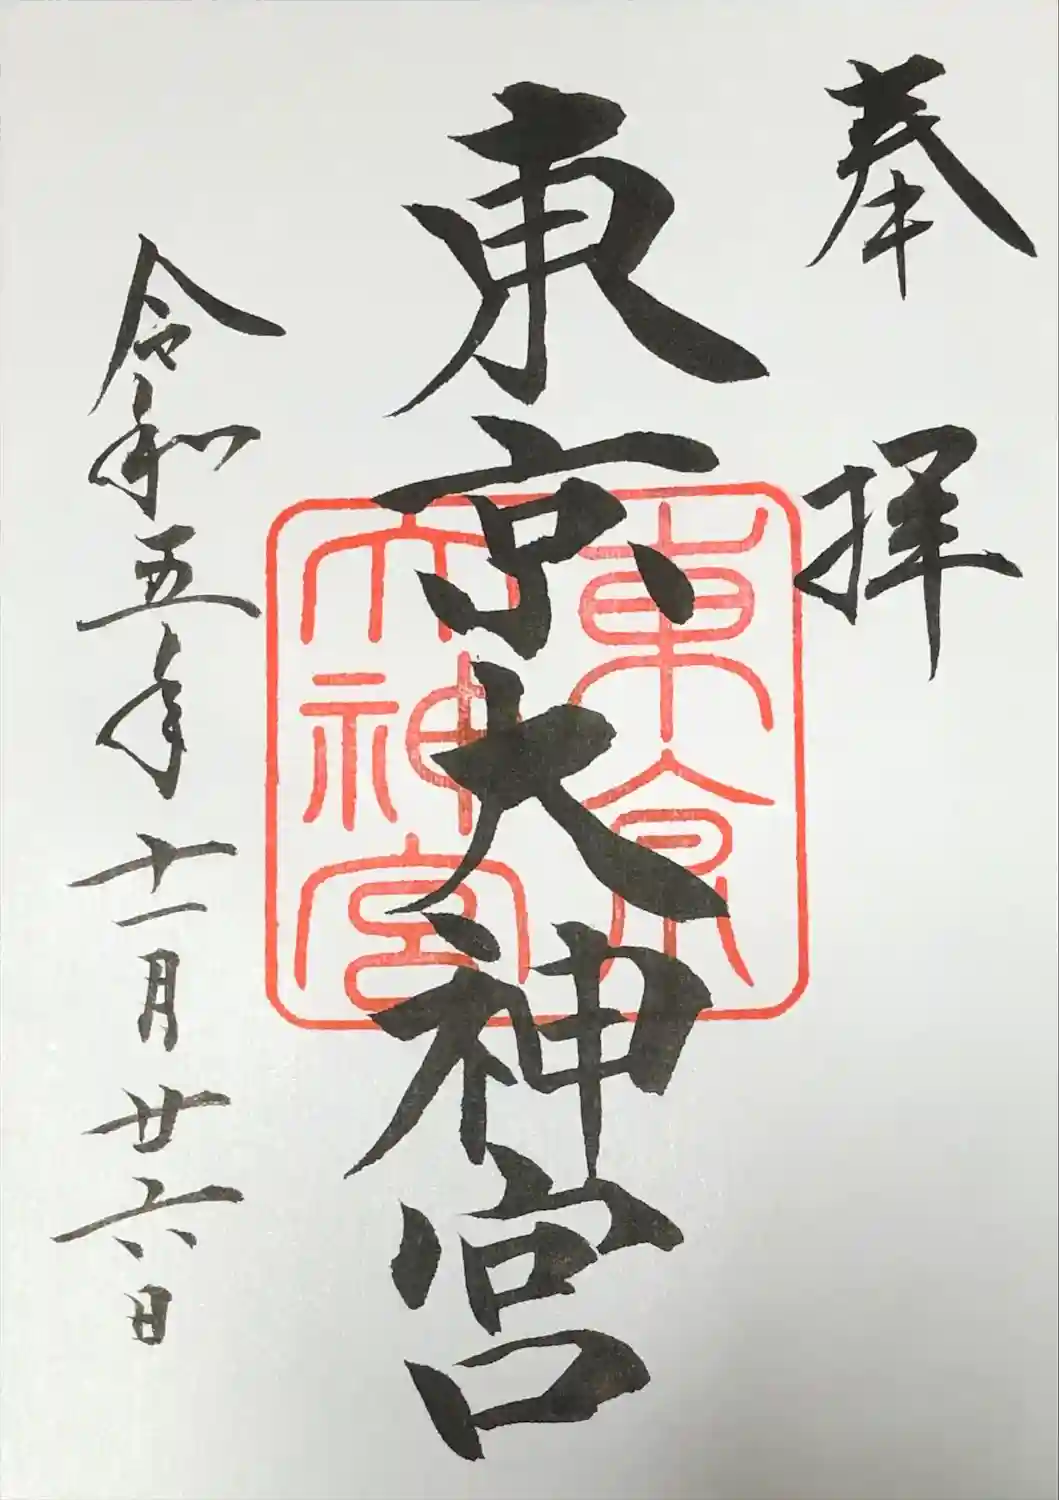 奉拝
東京大神宮
東京
大神宮
令和五年十一月廿六日